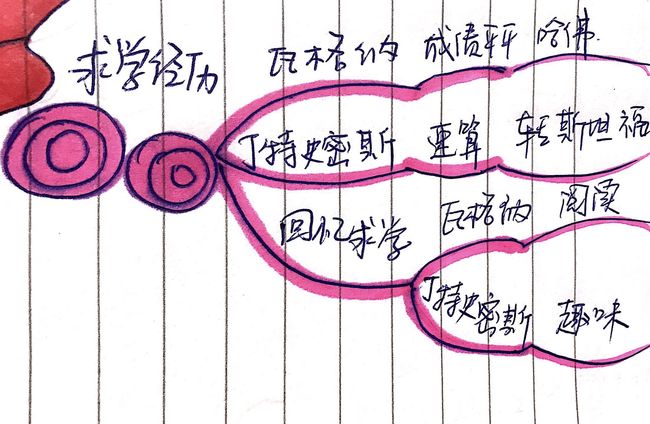 求学经历
瓦格纳 成绩平平 哈佛
丁特史密斯 速算 转斯坦福
回忆求学
瓦格纳 阅读
丁特史密斯 趣味